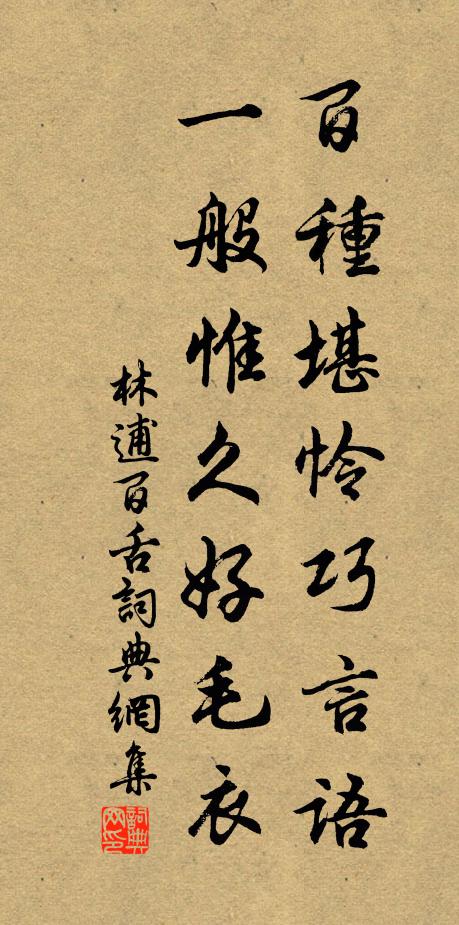 百種堪怜巧言語
一般惟久好毛衣
林逋百舌詞典網集
詞典网印